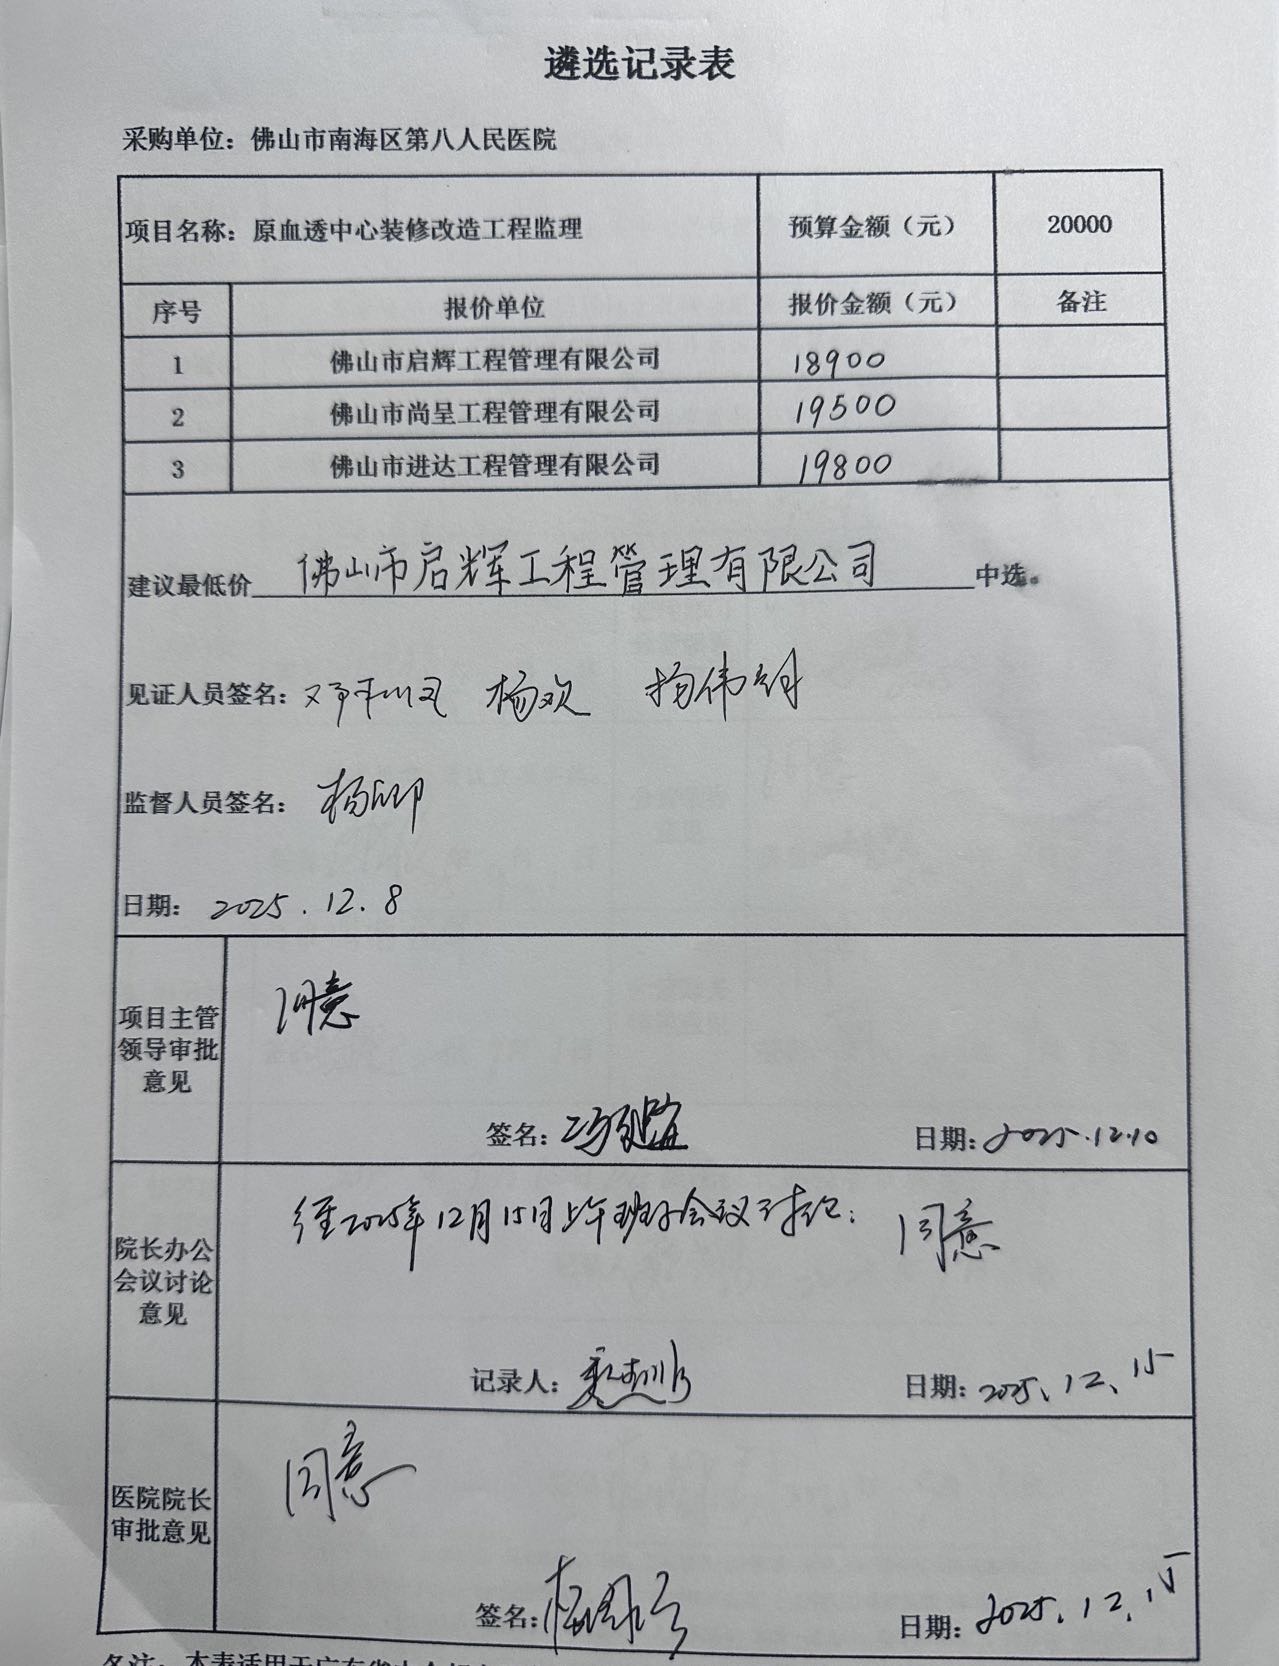 遴选记录表
采购单位：佛山市南海区第八人民医院
项目名称：原血透中心装修改造工程监理 预算金额（元） 20000
序号 报价单位 报价金额（元） 备注
1 佛山市启辉工程管理有限公司 18900
2 佛山市尚呈工程管理有限公司 19500
3 佛山市进达工程管理有限公司 19800
建议最低价 佛山市启辉工程管理有限公司 中选。
见证人员签名： 杨欢
监督人员签名：
日期： 2025.12.8
同意
项目主管
领导审批
意见
签名： 日期：2025.12.10
经2025年12月15日上午班子会议讨论： 同意
院长办公
会议讨论
意见
记录人： 日期：2025、12、15
同意
医院院长
审批意见
签名： 日期：2025、12、15